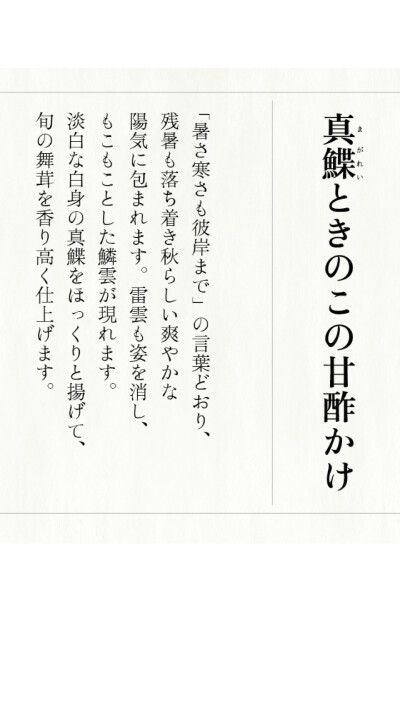 真鰈ときのこの甘酢かけ
まがれい
「暑さ寒さも彼岸まで」の言葉どおり、
残暑も落ち着き秋らしい爽やかな
陽気に包まれます。雷雲も姿を消し、
もこもことした鱗雲が現れます。
淡白な白身の真鰈をほっくりと揚げて、
旬の舞茸を香り高く仕上げます。